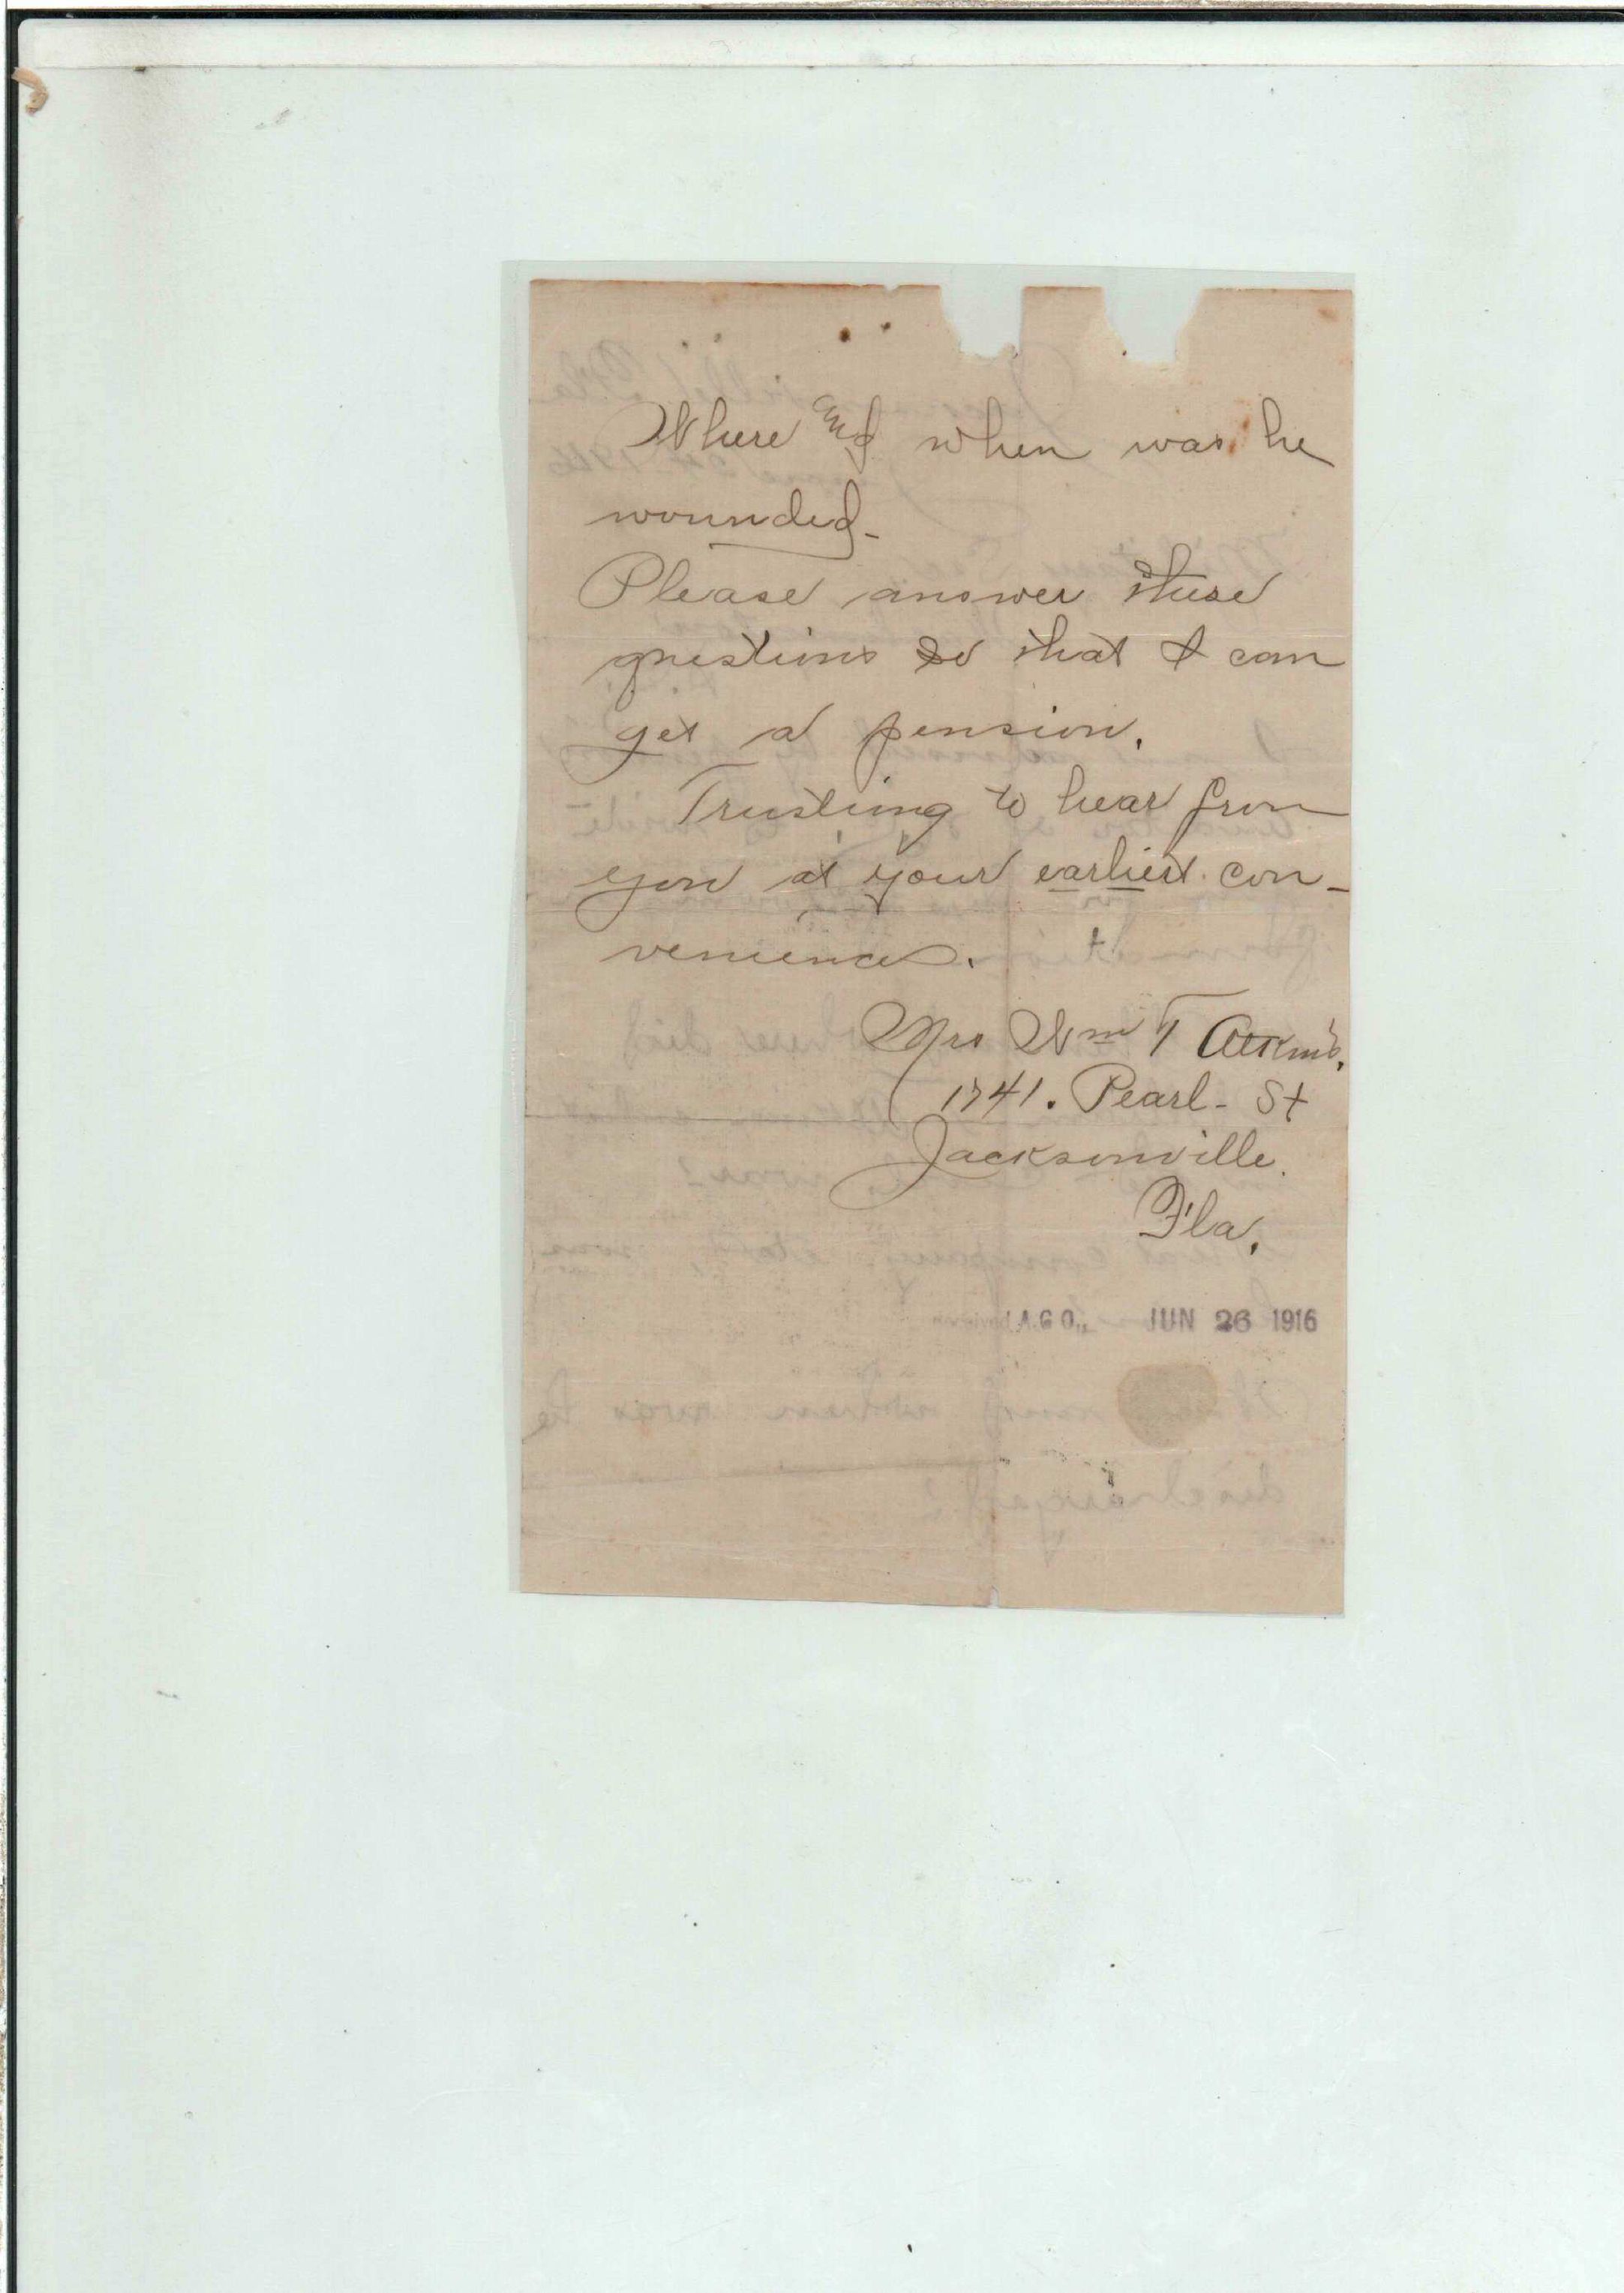 Where and when was he
wounded-
Please answer these
questions so that I can
get a pension.
Trusting to hear from
you at your earliest con-
venience.
Mrs Wm T Atkins.
1741. Pearl- St
Jacksonville.
Fla.
A.G.O. JUN 26 1916